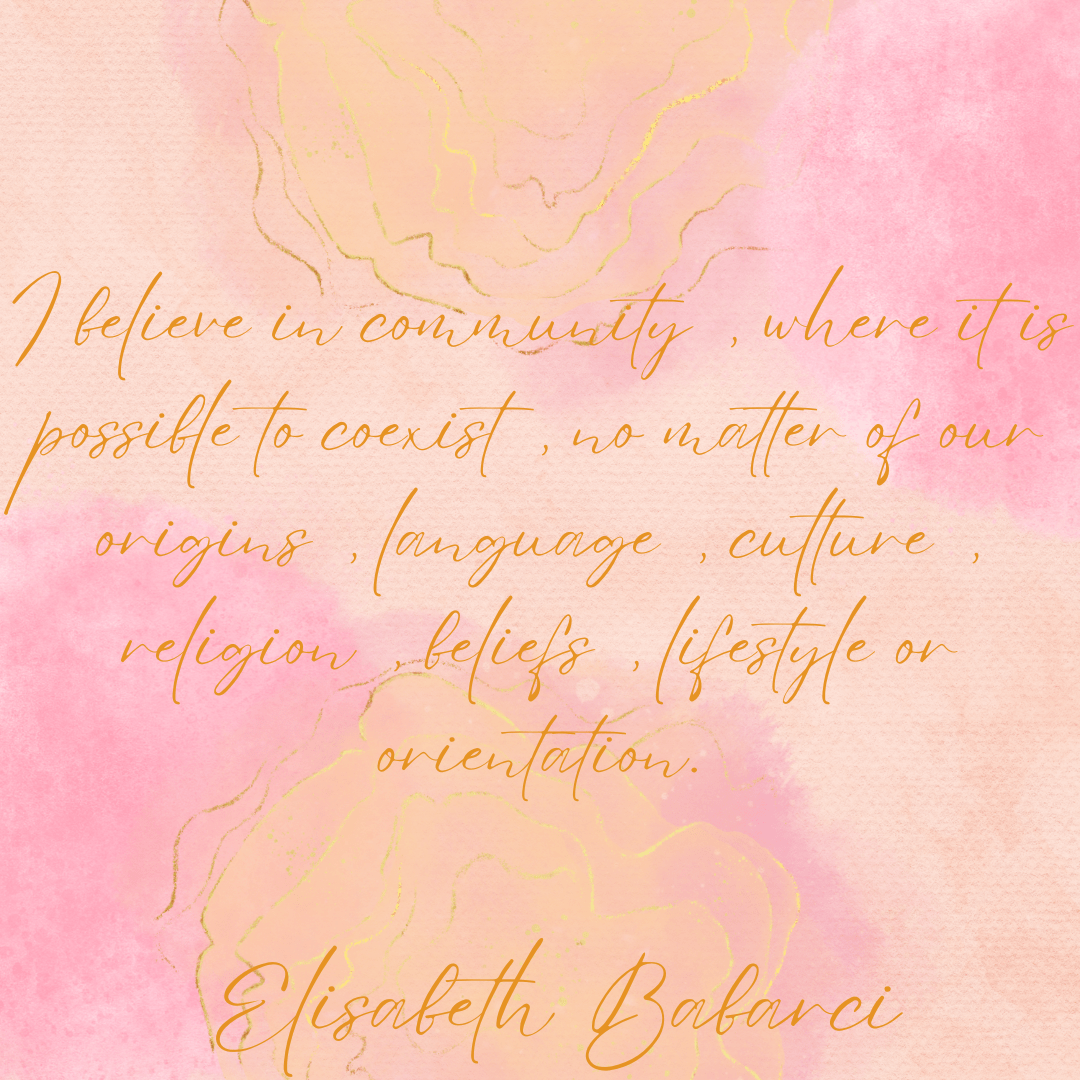 I believe in community , where it is
possible to coexist , no matter of our
origins , language , culture ,
religion , beliefs , lifestyle or
orientation.
Elisabeth Babarci